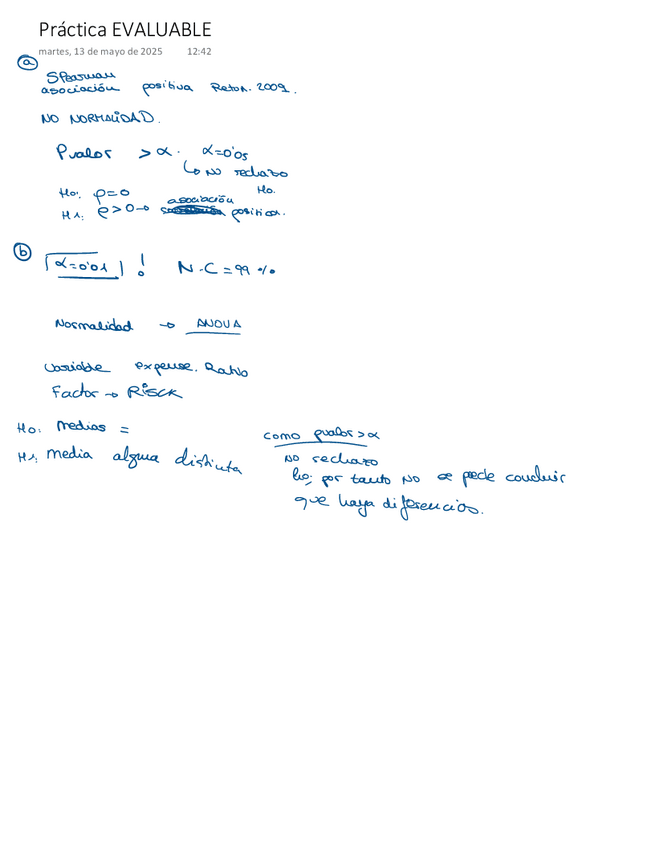 Práctica EVALUABLE
martes, 13 de mayo de 2025 12:42
a
Spearman
asociación positiva Retor. 2009.
NO NORMALIDAD.
Pvalor > α. α=0'05
↳ NO rechazo
Ho.
Ho: ρ=0
H1: ρ>0 → asociación positiva.
b
α=0'01 ! N.C = 99 %
Normalidad → ANOVA
Variable expense. Ratio
Factor → RISCK
Ho: Medias =
H1: media alguna distinta
como pvalor > α
NO rechazo
ho; por tanto NO se pede concluir
que haya diferencias.